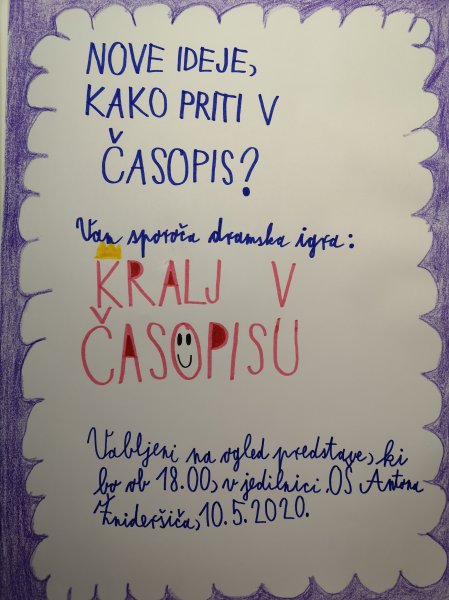 NOVE IDEJE,
KAKO PRITI V
ČASOPIS?
Vam sporoča dramska igra:
KRALJ V
ČASOPISU
Vabljeni na ogled predstave, ki
bo ob 18.00, v jedilnici OŠ Antona
Žnideršiča, 10.5.2020.